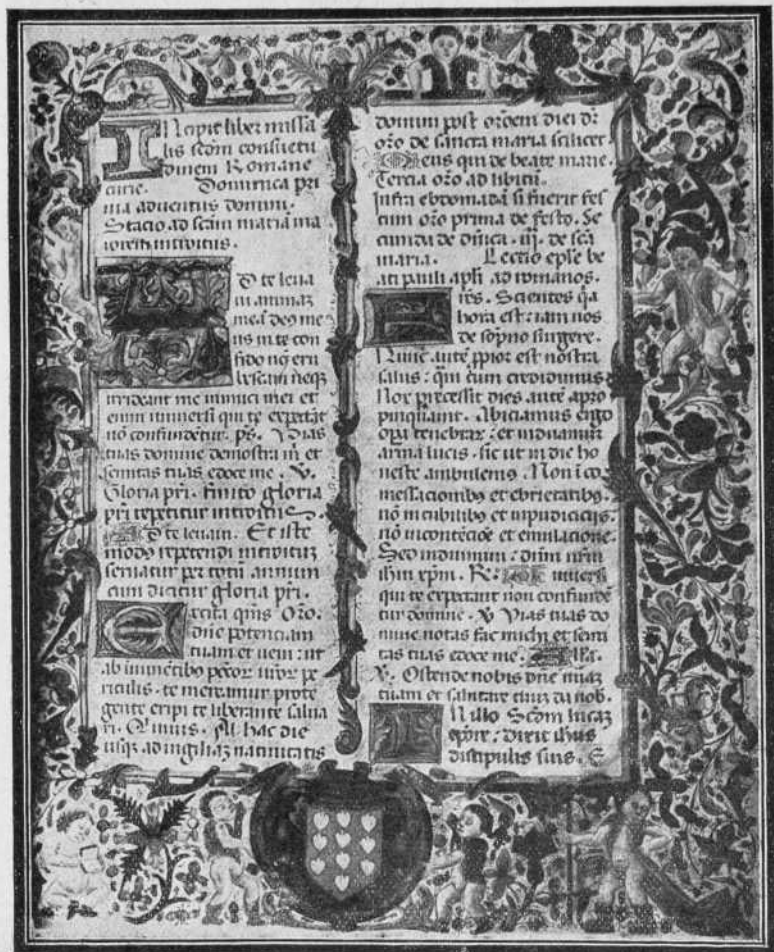 INcipit liber missa
lis scdm consuetu
dinem Romane
curie. Dominica pri
ma adventus domini.
Stacio ad scam maria ma
iorem introitus.
AD te leva
vi animaz
meā deus me
us in te con
fido nō eru
bescam neq
irrideant me inimici mei et
enim universi qui te expectāt
nō confundētur. ps. Vias
tuas domine demōstra m et
semitas tuas edoce me. V.
Gloria pri. finito gloria
pri repetitur introitus.
AD te levavi. Et iste
modus repetendi introituz
servatur per totū annum
cum dicitur gloria pri.
Excita qms Oro.
dne potenciam
tuam et veni: ut
ab iminētibus pctor nror pe
riculis. te mereamur prote
gente eripi te liberante salva
ri. Qui vivis. Ab hac die
usq ad vigiliaz nativitatis
domini post ordem diei dr
oro de sancta maria scilicet
Deus qui de beate marie.
Tercia oro ad libitū.
Infra ebdomadā si fuerit fes
tum oro prima de festo. Se
cunda de dnica. iij. de scā
maria. Lectio eple be
ati pauli apli ad romanos.
FRēs. Scientes qa
hora est: iam nos
de sopno surgere.
Nunc autē ppior est nostra
salus: qm cum credidimus
Nox precessit dies autē apro
pinquavit. Abiciamus ergo
opa tenebrar: et induamur
arma lucis. sic ut in die ho
neste ambulemus. Non ī co
messacionibus et ebrietatibus.
nō in cubilibus et inpudicicijs.
nō in contēcōe et emulacione.
Sed induimini: dnm nrm
ihm xpm. R: univers
qui te expectant non confundē
tur domine. V Vias tuas do
mine notas fac michi et semi
tas tuas edoce me. Alla.
V. Ostende nobis dne miaz
tuam et salutare tuuz da nob.
IN illo Scdm lucaz
tpre: dixit ihus
discipulis suis. E